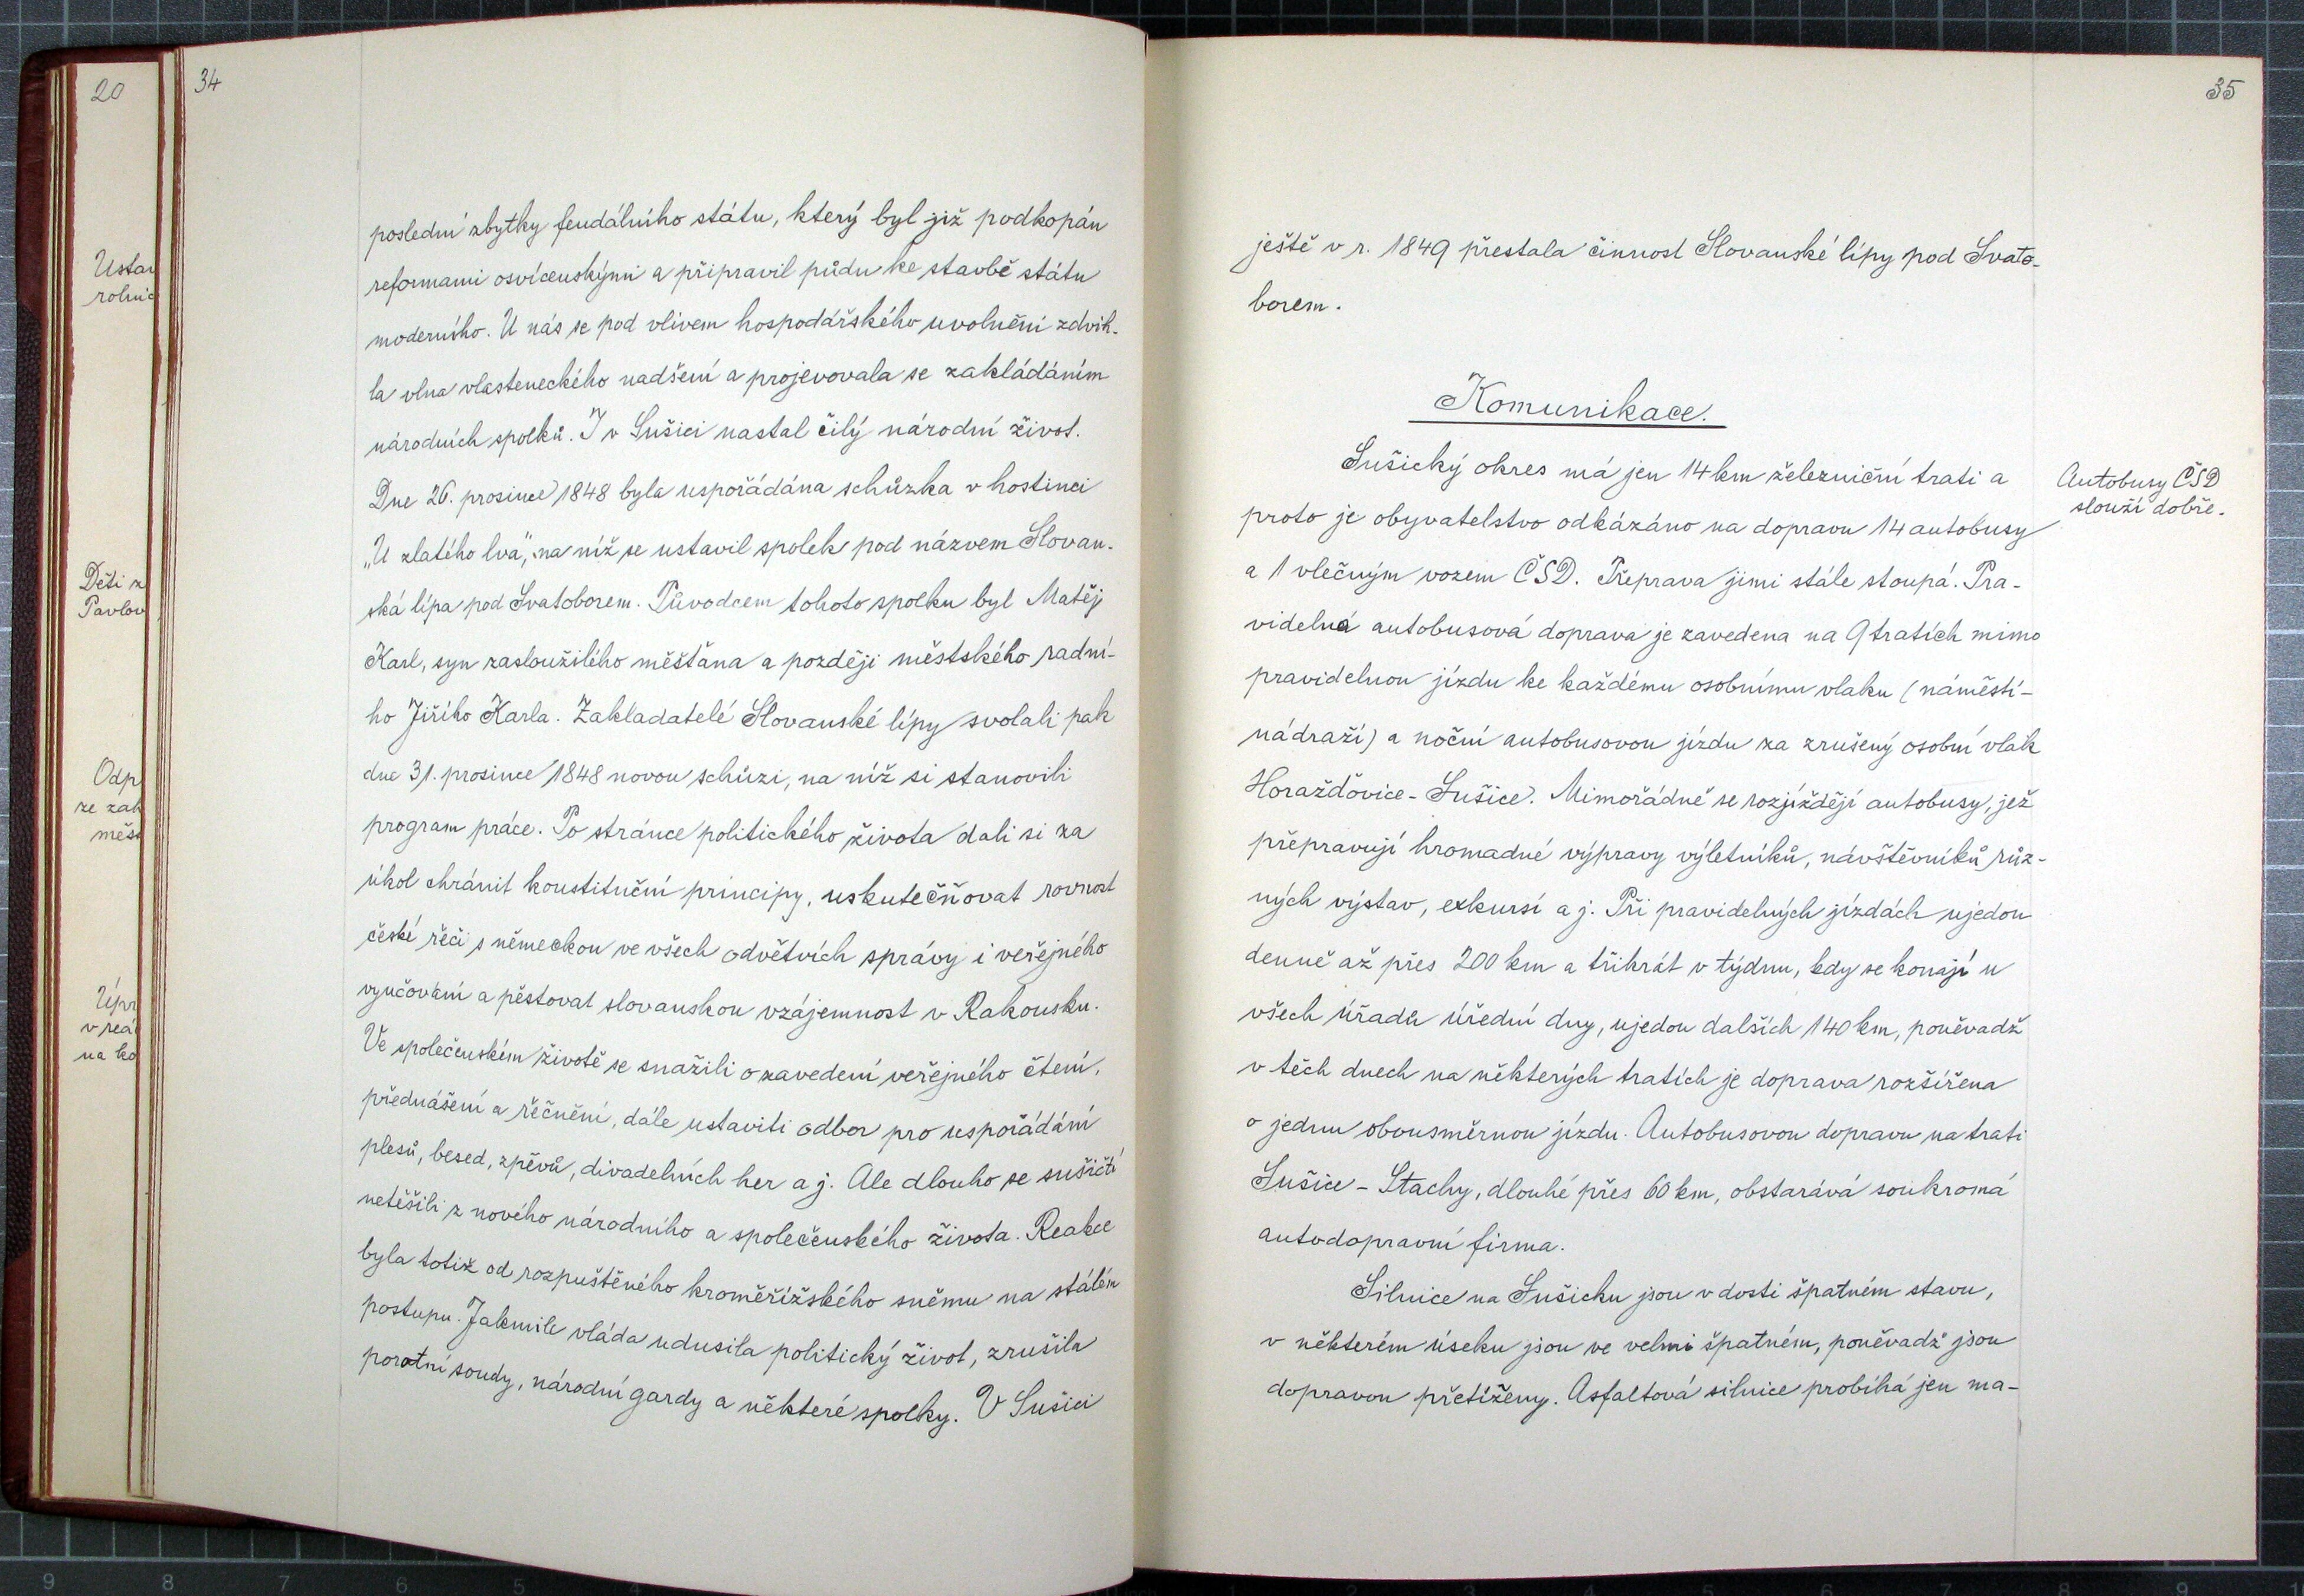 20
Ustav
rolnic
Děti z
Pavlov
Odp
ze zah
měst
Úpr
v reá
na ko
34
poslední zbytky feudálního státu, který byl již podkopán
reformami osvícenskými a připravil půdu ke stavbě státu
moderního. U nás se pod vlivem hospodářského uvolnění zdvih-
la vlna vlasteneckého nadšení a projevovala se zakládáním
národních spolků. I v Sušici nastal čilý národní život.
Dne 26. prosince 1848 byla uspořádána schůzka v hostinci
„U zlatého lva", na níž se ustavil spolek pod názvem Slovan-
ská lípa pod Svatoborem. Původcem tohoto spolku byl Matěj
Karl, syn zasloužilého měšťana a později městského radní-
ho Jiřího Karla. Zakladatelé Slovanské lípy svolali pak
dne 31. prosince 1848 novou schůzi, na níž si stanovili
program práce. Po stránce politického života dali si za
úkol chránit konstituční principy, uskutečňovat rovnost
české řeči s německou ve všech odvětvích správy i veřejného
vyučování a pěstovat slovanskou vzájemnost v Rakousku.
Ve společenském životě se snažili o zavedení veřejného čtení,
přednášení a řečnění, dále ustaviti odbor pro uspořádání
plesů, besed, zpěvů, divadelních her a j. Ale dlouho se sušičtí
netěšili z nového národního a společenského života. Reakce
byla totiž od rozpuštěného kroměřížského sněmu na stálém
postupu. Jakmile vláda udusila politický život, zrušila
porotní soudy, národní gardy a některé spolky. V Sušici
35
ještě v r. 1849 přestala činnost Slovanské lípy pod Svato-
borem.
Komunikace.
Sušický okres má jen 14 km železniční trati a
proto je obyvatelstvo odkázáno na dopravu 14 autobusy
a 1 vlečným vozem ČSD. Přeprava jimi stále stoupá. Pra-
videlná autobusová doprava je zavedena na 9 tratích mimo
pravidelnou jízdu ke každému osobnímu vlaku (náměstí-
nádraží) a noční autobusovou jízdu za zrušený osobní vlak
Horažďovice - Sušice. Mimořádně se rozjíždějí autobusy, jež
přepravují hromadné výpravy výletníků, návštěvníků růz-
ných výstav, exkursí a j. Při pravidelných jízdách ujedou
denně až přes 200 km a třikrát v týdnu, kdy se konají u
všech úřadů úřední dny, ujedou dalších 140 km, poněvadž
v těch dnech na některých tratích je doprava rozšířena
o jednu obousměrnou jízdu. Autobusovou dopravu na trati
Sušice - Stachy, dlouhé přes 60 km, obstarává soukromá
autodopravní firma.
Silnice na Sušicku jsou v dosti špatném stavu,
v některém úseku jsou ve velmi špatném, poněvadž jsou
dopravou přetíženy. Asfaltová silnice probíhá jen ma-
Autobusy ČSD
slouží dobře.
9 8 7 6 5 4
1 2 3 4 5 6 7 8 9